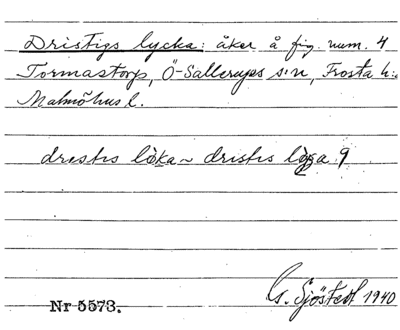 Dristigs lycka: åker å fig. num. 4
Tormastorp, Ö-Sallerups s:n, Frosta h:d
Malmöhus l.
dristis löka ~ dristis löga
Nr 5573.
G. Sjöstedt 1940